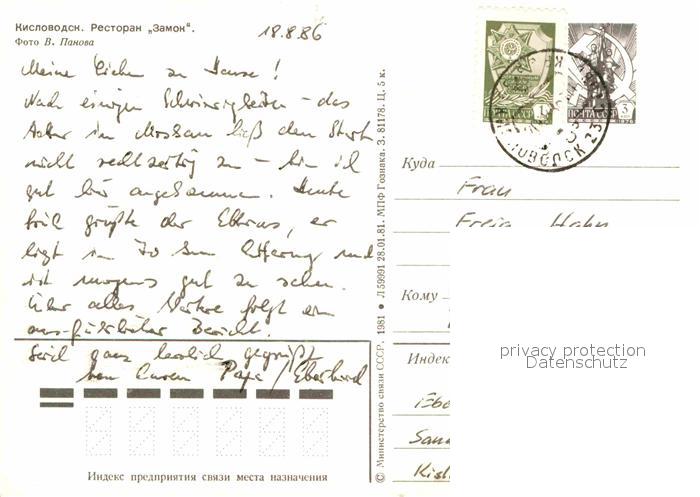 Кисловодск. Ресторан „Замок“.
Фото В. Панова
18.8.86
Meine Lieben zu Hause!
Nach einigen Schwierigkeiten – das
Wetter in Moskau ließ den Start
nicht rechtzeitig zu – bin ich
gut hier angekommen. Heute
früh grüßte der Elbrus, er
liegt in 70 km Entfernung und
ist morgens gut zu sehen.
Über alles Weitere folgt ein
ausführlicher Bericht.
Seid ganz herzlich gegrüßt
von Eurem Papi / Eberhard
Индекс предприятия связи места назначения
© Министерство связи СССР. 1981 • Л 59991 28.01.81. МПФ Гознака. З. 81178. Ц. 5 к.
ПОЧТА СССР 1
ПОЧТА СССР 3
КИСЛОВОДСК 23
Куда
Frau
Freia Hahn
Кому
Индек
Ebe
San
Kisl
privacy protection
Datenschutz